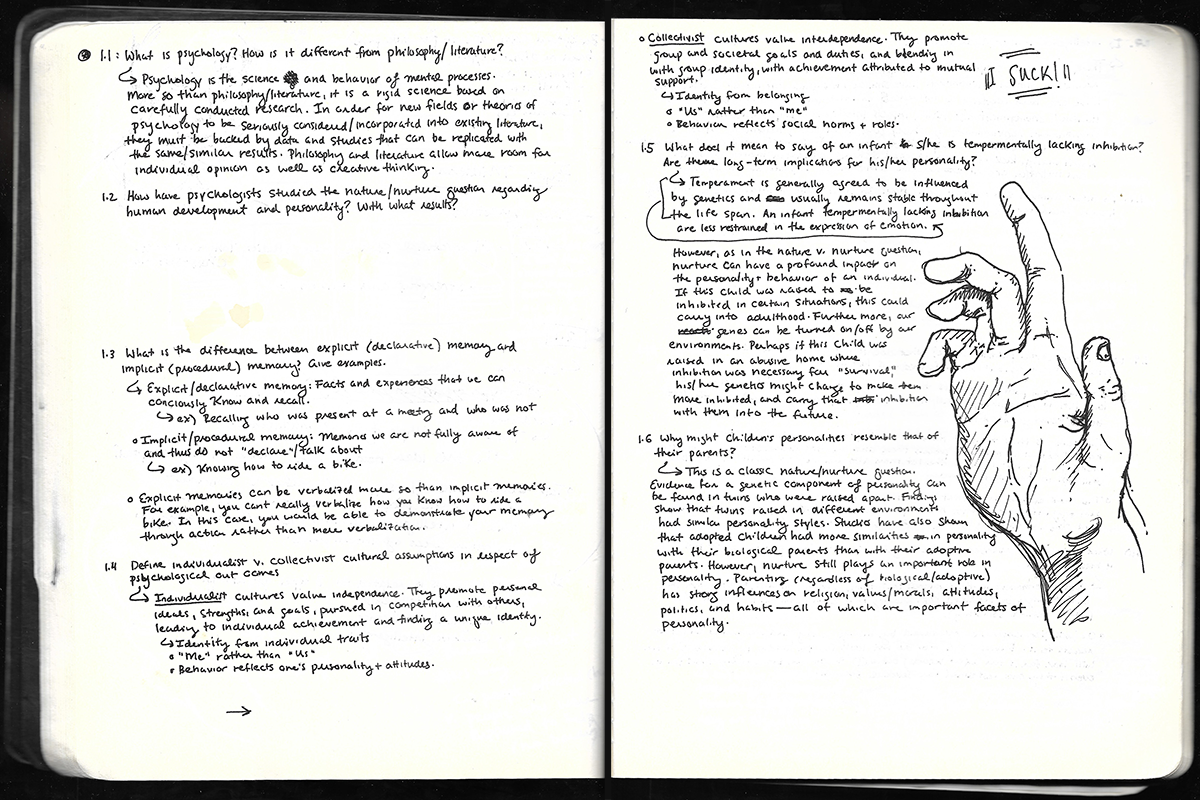 1.1: What is psychology? How is it different from philosophy/literature?
↳ Psychology is the science and behavior of mental processes.
More so than philosophy/literature, it is a rigid science based on
carefully conducted research. In order for new fields or theories of
psychology to be seriously considered/incorporated into existing literature,
they must be backed by data and studies that can be replicated with
the same/similar results. Philosophy and literature allow more room for
individual opinion as well as creative thinking.
1.2 How have psychologists studied the nature/nurture question regarding
human development and personality? With what results?
1.3 What is the difference between explicit (declarative) memory and
implicit (procedural) memory? Give examples.
↳ Explicit/declarative memory: Facts and experiences that we can
conciously know and recall.
↳ ex) Recalling who was present at a meeting and who was not
o Implicit/procedural memory: Memories we are not fully aware of
and thus do not "declare"/talk about
↳ ex) Knowing how to ride a bike.
o Explicit memories can be verbalized more so than implicit memories.
For example, you can't really verbalize how you know how to ride a
bike. In this case, you would be able to demonstrate your memory
through action rather than mere verbalization.
1.4 Define individualist v. collectivist cultural assumptions in respect of
psychological out comes
↳ Individualist cultures value independence. They promote personal
ideals, strengths, and goals, pursued in competition with others,
leading to individual achievement and finding a unique identity.
↳ Identity from individual traits
o "Me" rather than "Us"
o Behavior reflects one's personality + attitudes.
→
o Collectivist cultures value interdependence. They promote
group and societal goals and duties, and blending in
with group identity, with achievement attributed to mutual
support.
↳ Identity from belonging
o "Us" rather than "me"
o Behavior reflects social norms + roles.
"I SUCK!"
1.5 What does it mean to say of an infant s/he is tempermentally lacking inhibition?
Are there long-term implications for his/her personality?
↳ Temperament is generally agreed to be influenced
by genetics and usually remains stable throughout
the life span. An infant tempermentally lacking inhibition
are less restrained in the expression of emotion.
However, as in the nature v. nurture question,
nurture can have a profound impact on
the personality + behavior of an individual.
If this child was raised to be
inhibited in certain situations, this could
carry into adulthood. Further more, our
genes can be turned on/off by our
environments. Perhaps if this child was
raised in an abusive home where
inhibition was necessary for "survival,"
his/her genetics might change to make them
more inhibited, and carry that inhibition
with them into the future.
1.6 Why might children's personalities resemble that of
their parents?
↳ This is a classic nature/nurture question.
Evidence for a genetic component of personality can
be found in twins who were raised apart. Findings
show that twins raised in different environments
had similar personality styles. Studies have also shown
that adopted children had more similarities in personality
with their biological parents than with their adoptive
parents. However, nurture still plays an important role in
personality. Parenting (regardless of biological/adoptive)
has strong influences on religion, values/morals, attitudes,
politics, and habits — all of which are important facets of
personality.